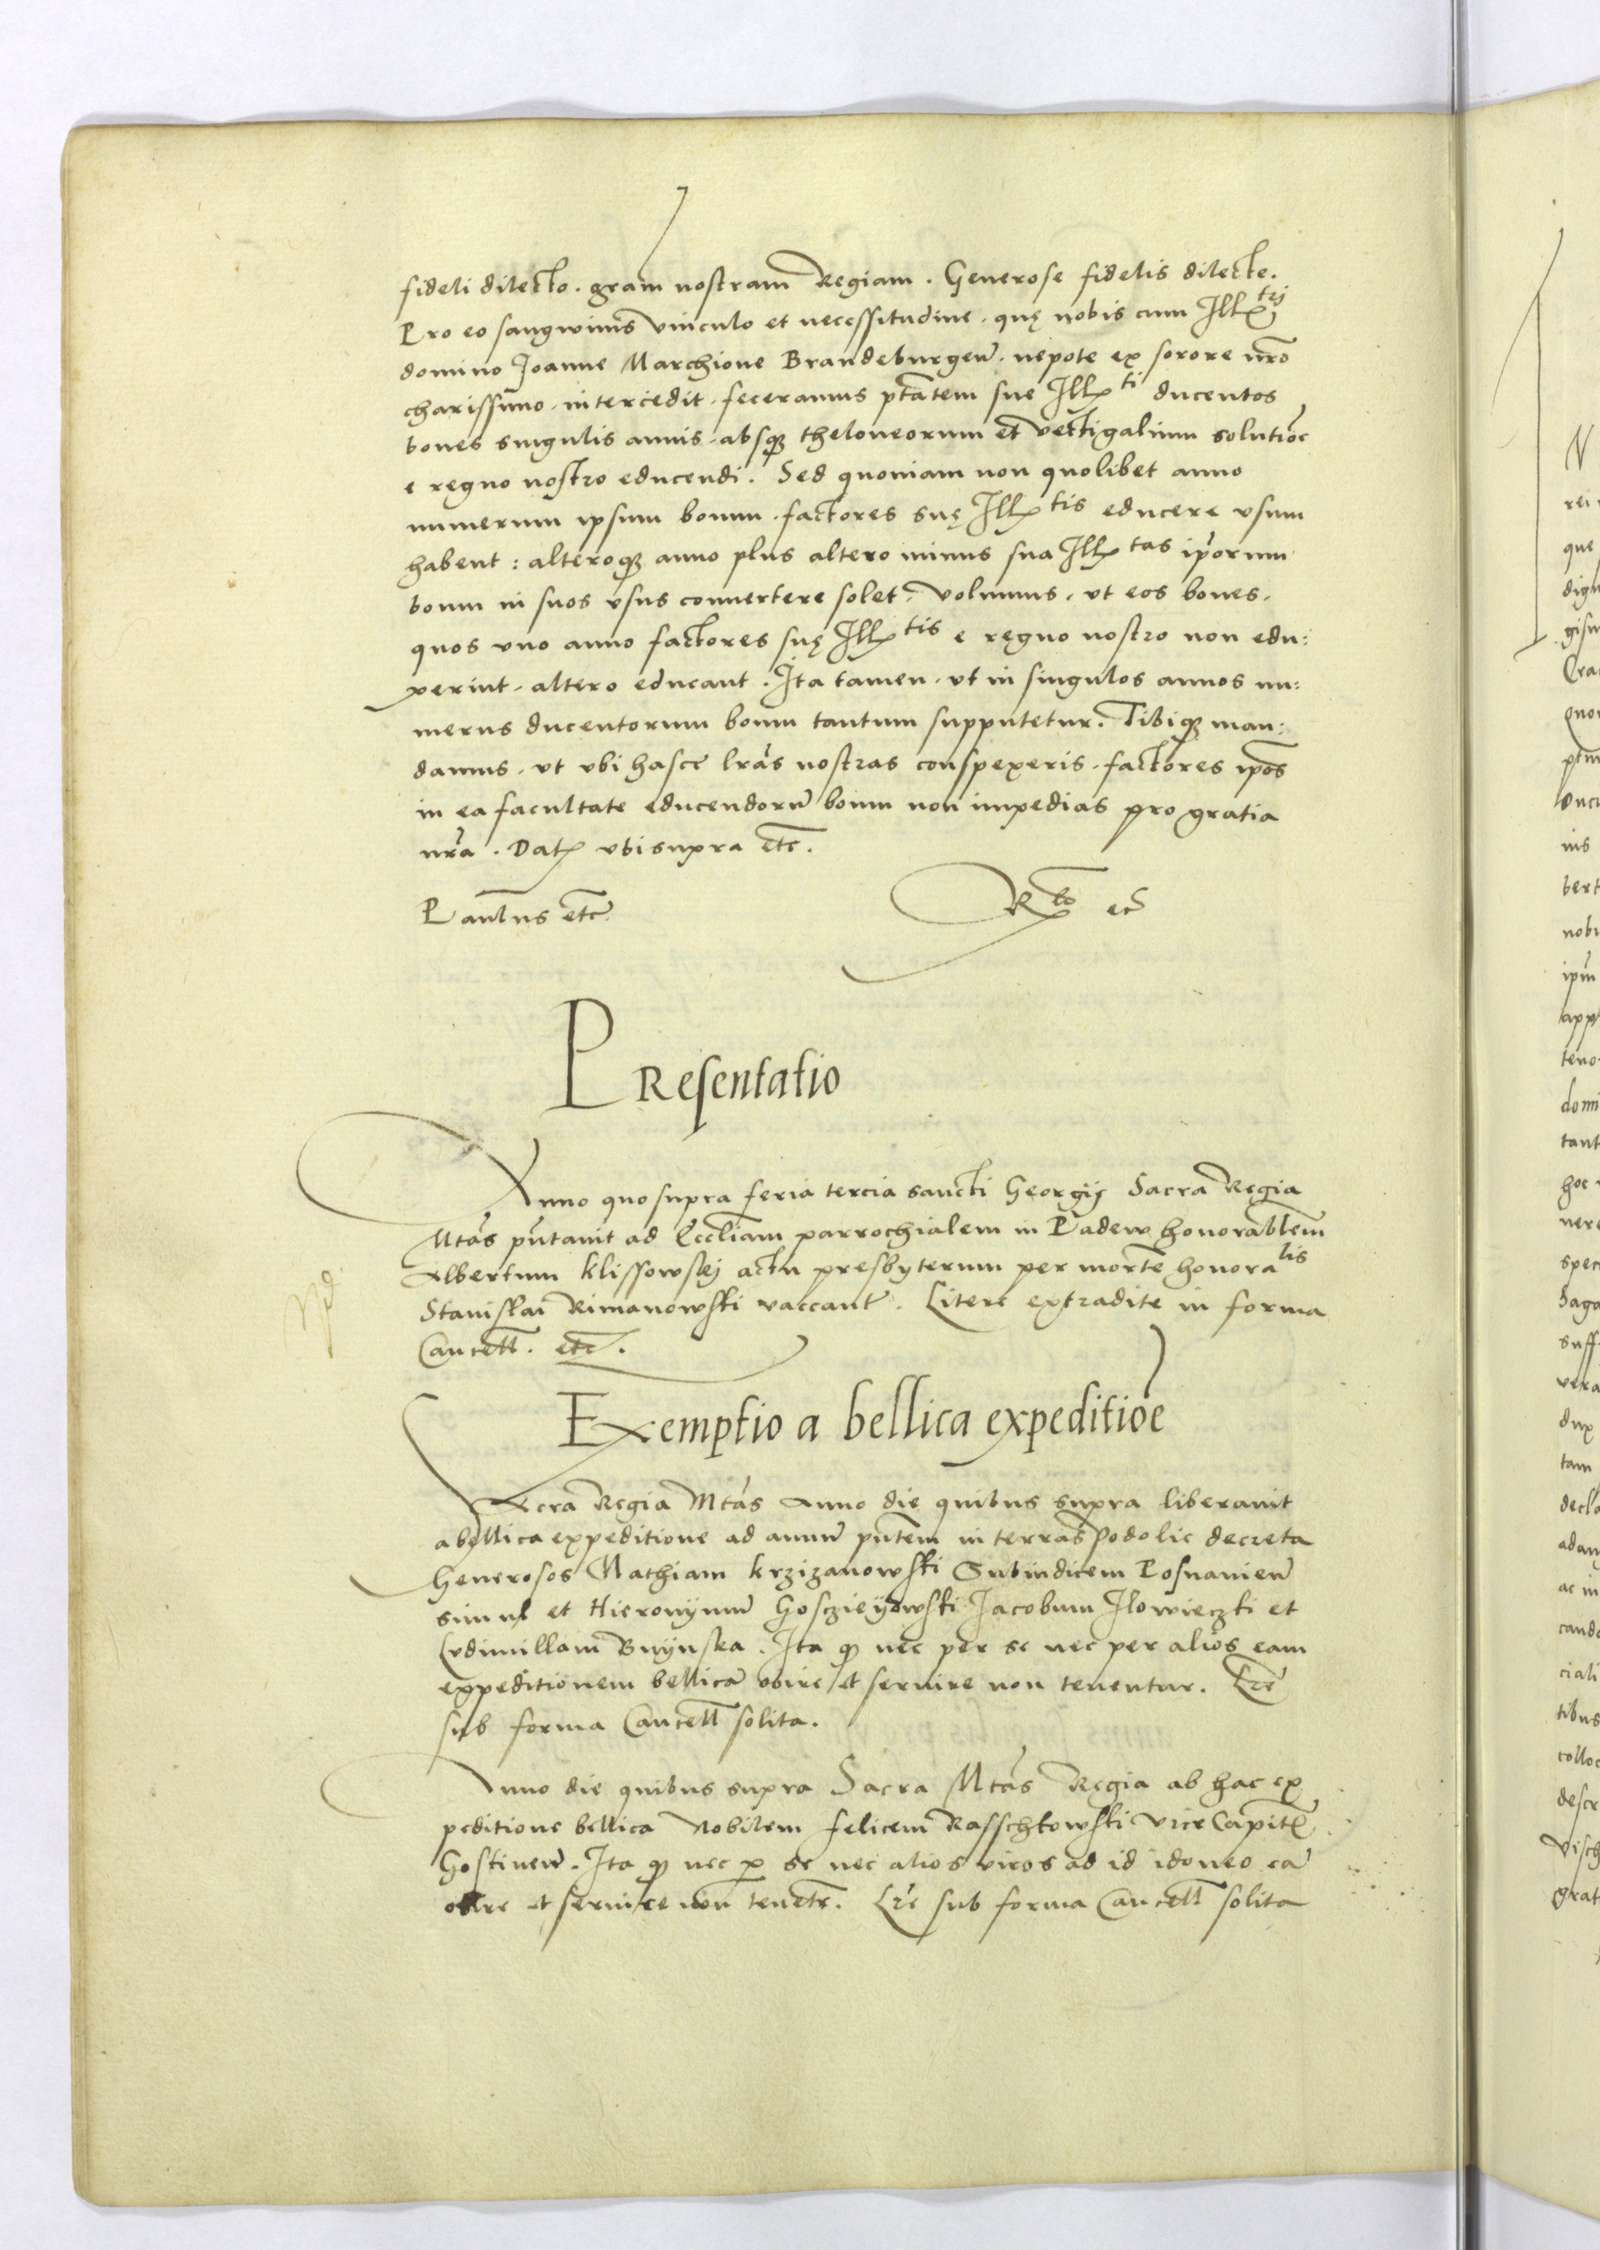 fideli dilecto. gram̃ nostram Regiam. Generose fidelis dilecte.
Pro eo sangwinis vinculo et necessitudine. quę nobis cum Ill trj
domino Joanne Marchione Brandeburgeñ. nepote ex sorore nr̃o
charissimo. intercedit. feceramus ptãtem sue Ill ti ducentos
boues singulis annis. absqꝫ theloneorum et vectigalium solutiõe
e regno nostro educendi. Sed quoniam non quolibet anno
numerum ipsum boum. factores suę Ill tis educere vsum
habent: alteroqꝫ anno plus altero minus sua Ill tas ip̃orum
boum in suos vsus conuertere solet. Volumus. vt eos boues.
quos vno anno factores suę Ill tis e regno nostro non edu:
xerint. altero educant. Ita tamen. vt in singulos annos nu:
merus ducentorum boum tantum supputetur. Tibiqꝫ man:
damus. vt vbi hasce lrãs nostras conspexeris. factores ip̃os
in ea facultate educendorũ boum non impedias pro gratia
nr̃a. Dat vbi supra etc̃.
Paulus etc̃ R to ec̃
PResentatio
Anno quo supra feria tercia sancti Georgij Sacra Regia
Mtãs pñtauit ad Eccl̃iam parrochialem in Padew honorablem̃
Albertum Klissowskj actu presbyterum per mortẽ honora lis
Stanislai Rimanowski vaccant̃. Litere extradite in forma
Cancell̃. etc̃.
Exemptio a bellica expeditioẽ
Sacra Regia Mtãs Anno die quibus supra liberauit
a bellica expeditione ad annũ pñtem in terras Podolie decreta
Generosos Mathiam Krzizanowski Subiudicem Posnanieñ
simul et Hieronymũ Gosczieyowski Jacobum Ilowieczki et
Ludimillam Bnynska. Ita qꝫ nec per se nec per alios eam
expeditionem bellicã obire et seruire non tenentur. Lrẽ
sub forma Cancell̃ solita.
Anno die quibus supra Sacra Mtãs Regia ab hac ex
peditione bellica Nobilem felicem Rasschkowski Vice Capit̃
Gostineñ. Ita qꝫ nec ꝑ se nec alios viros ad id idoneo eã
obire et seruire non tenetr̃. Lrẽ sub forma Cancell̃ solita